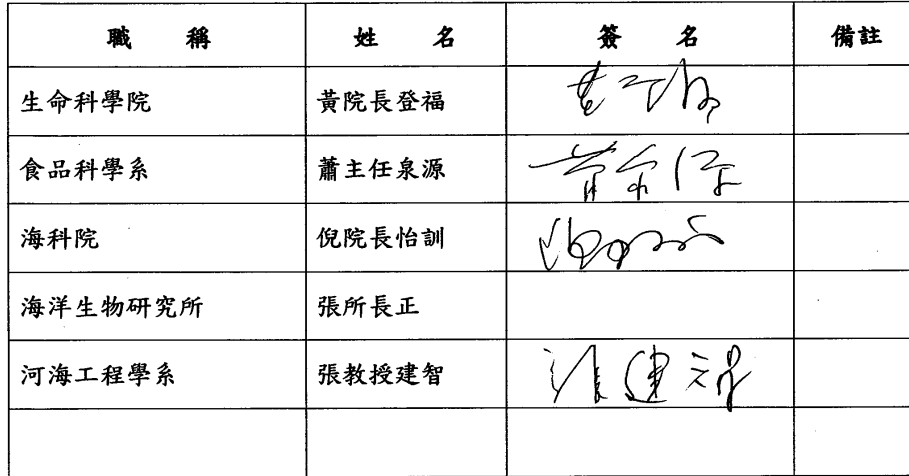 職稱 姓名 簽名 備註
生命科學院 黃院長登福
食品科學系 蕭主任泉源
海科院 倪院長怡訓
海洋生物研究所 張所長正
河海工程學系 張教授建智 張建智